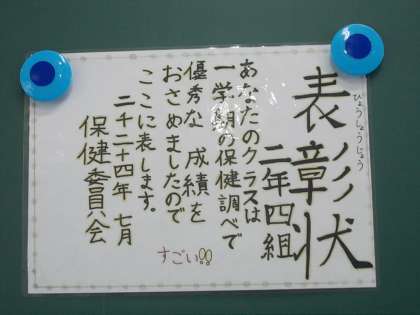 表彰状
ひょうしょうじょう
二年四組
あなたのクラスは
一学期の保健調べで
優秀な成績を
おさめましたので
ここに表します。
二千二十四年 七月
保健委員会
すごい!!